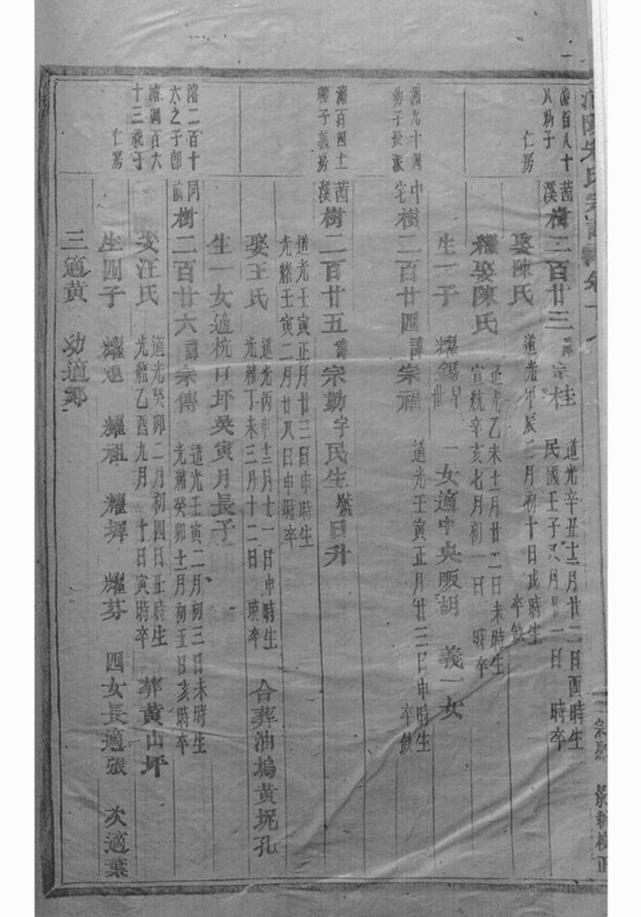 宗譜卷十八
濟百八十
八幼子
仁房
茜溪
樹二百廿三 諱宗桂 道光辛丑十二月廿二日酉時生
民國壬子八月 一日 時卒
娶陳氏 道光甲辰二月初十日戌時生
卒缺
繼娶陳氏 道光乙未十一月廿二日未時生
宣統辛亥七月初一日 時卒
生一子 耀錫 一女適中央畈胡 義一女
幼子長派
中宅
樹二百廿四 諱宗福 道光壬寅正月廿二日申時生
卒缺
濟百四十
子義房
茜溪
樹二百廿五 諱宗勤 字民生 號日升
道光壬寅正月廿三日申時生
光緒壬寅二月廿八日申時卒
娶王氏 道光丙申十二月十一日申時生
光緒丁未三月十二日 時卒
合葬油塢黃坭孔
生一女適杭口坪吳寅月長子
濟二百十
六之子
十三祧于
仁房
同前
樹二百廿六 諱宗傳 道光壬寅二月初三日未時生
光緒癸卯十一月初五日亥時卒
娶汪氏 道光癸卯二月初四日丑時生
光緒乙酉九月 十日寅時卒
葬黃山坪
生四子 耀蓮 耀祖 耀坪 耀芬 四女長適張 次適葉
三適黃 幼適鄭